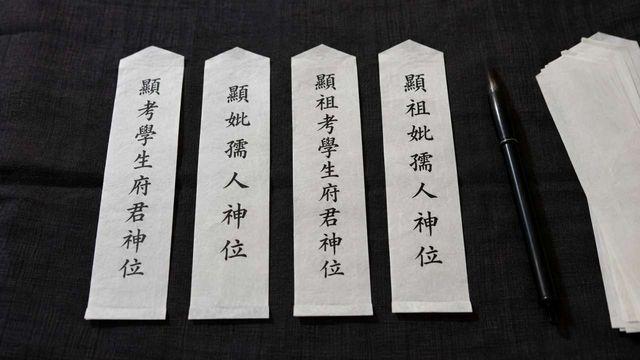 顯考學生府君神位
顯妣孺人神位
顯祖考學生府君神位
顯祖妣孺人神位